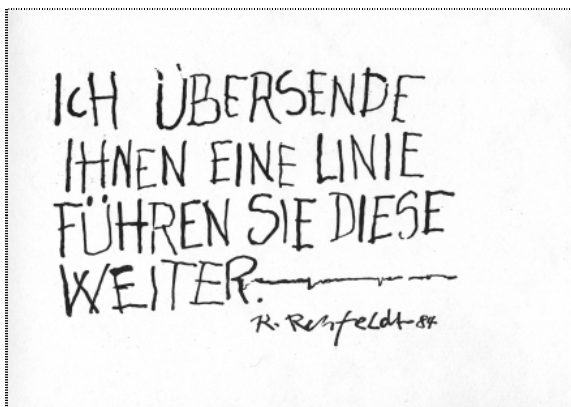 ICH ÜBERSENDE
IHNEN EINE LINIE
FÜHREN SIE DIESE
WEITER.
R. Rehfeldt 84